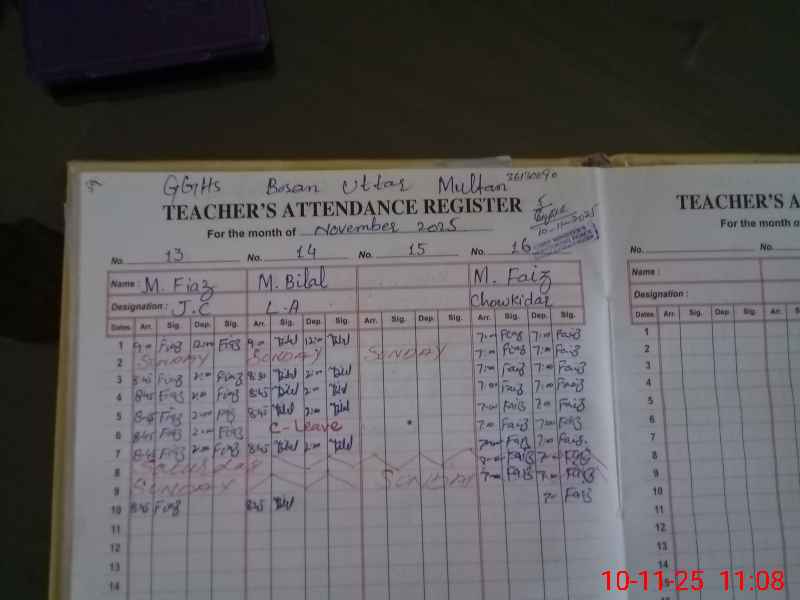 GGHS Bosan Uttar Multan
TEACHER'S ATTENDANCE REGISTER TEACHER'S A
For the month of November 2025 For the month o
10-11-2025
No. 13 No. 14 No. 15 No. 16 No. No.
Name : M. Fiaz M. Bilal M. Faiz Name :
Designation : J.C L.A Chowkidar Designation :
Dates Arr. Sig. Dep. Sig. Arr. Sig. Dep. Sig. Arr. Sig. Dep. Sig. Arr. Sig. Dep. Sig. Dates Arr. Sig. Dep. Sig.
1 9:00 Fiaz 12:00 Fiaz 9:00 Bilal 12:00 Bilal 7:00 Faiz 7:00 Faiz 1
2 SUNDAY SUNDAY SUNDAY 7:00 Faiz 7:00 Faiz 2
3 8:45 Fiaz 2:00 Fiaz 8:30 Bilal 2:00 Bilal 7:00 Faiz 7:00 Faiz 3
4 8:45 Fiaz 2:00 Fiaz 8:45 Bilal 2:00 Bilal 7:00 Faiz 7:00 Faiz 4
5 8:45 Fiaz 2:00 Fiaz 8:45 Bilal 2:00 Bilal 7:00 Faiz 7:00 Faiz 5
6 8:45 Fiaz 2:00 Fiaz C-Leave 7:00 Faiz 7:00 Faiz 6
7 8:45 Fiaz 2:00 Fiaz 8:45 Bilal 2:00 Bilal 7:00 Faiz 7:00 Faiz 7
8 Saturday 7:00 Faiz 7:00 Faiz 8
9 SUNDAY SUNDAY 7:00 Faiz 7:00 Faiz 9
10 8:45 Fiaz 8:45 Bilal 7:00 Faiz 10
11 11
12 12
13 13
14 14
10-11-25 11:08